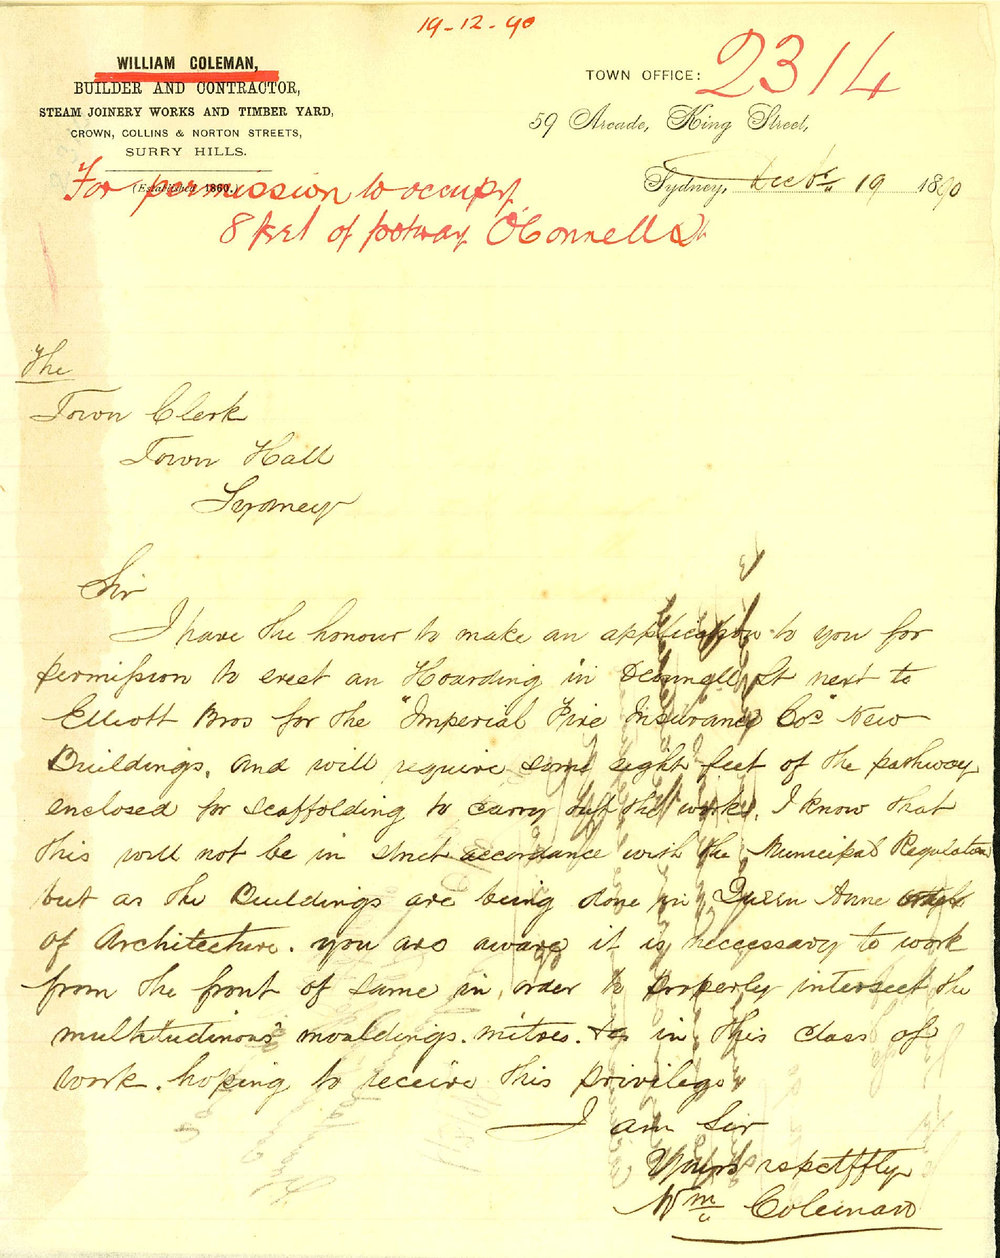 19-12-90
WILLIAM COLEMAN,
BUILDER AND CONTRACTOR,
STEAM JOINERY WORKS AND TIMBER YARD,
CROWN, COLLINS & NORTON STREETS,
SURRY HILLS.
(Established 1860.)
TOWN OFFICE: 2314
59 Arcade, King Street,
Sydney, Decbr 19 1890
For permission to occupy
8 feet of footway O'Connell St
The
Town Clerk
Town Hall
Sydney
Sir
I have the honour to make an application to you for
permission to erect an Hoarding in OConnell St next to
Elliott Bros for the "Imperial Fire Insurance Cos" New
Buildings, and will require some eight feet of the pathway
enclosed for scaffolding to carry out the works, I know that
this will not be in strict accordance with the Municipal Regulation
but as the Buildings are being done in Queen Anne style
of Architecture. you are aware it is neccessary to work
from the front of same in order to properly intersect the
multitudinous mouldings. mitres. &c in this class of
work. hoping to receive this privilege
I am Sir
Yours respectffly
Wm Coleman